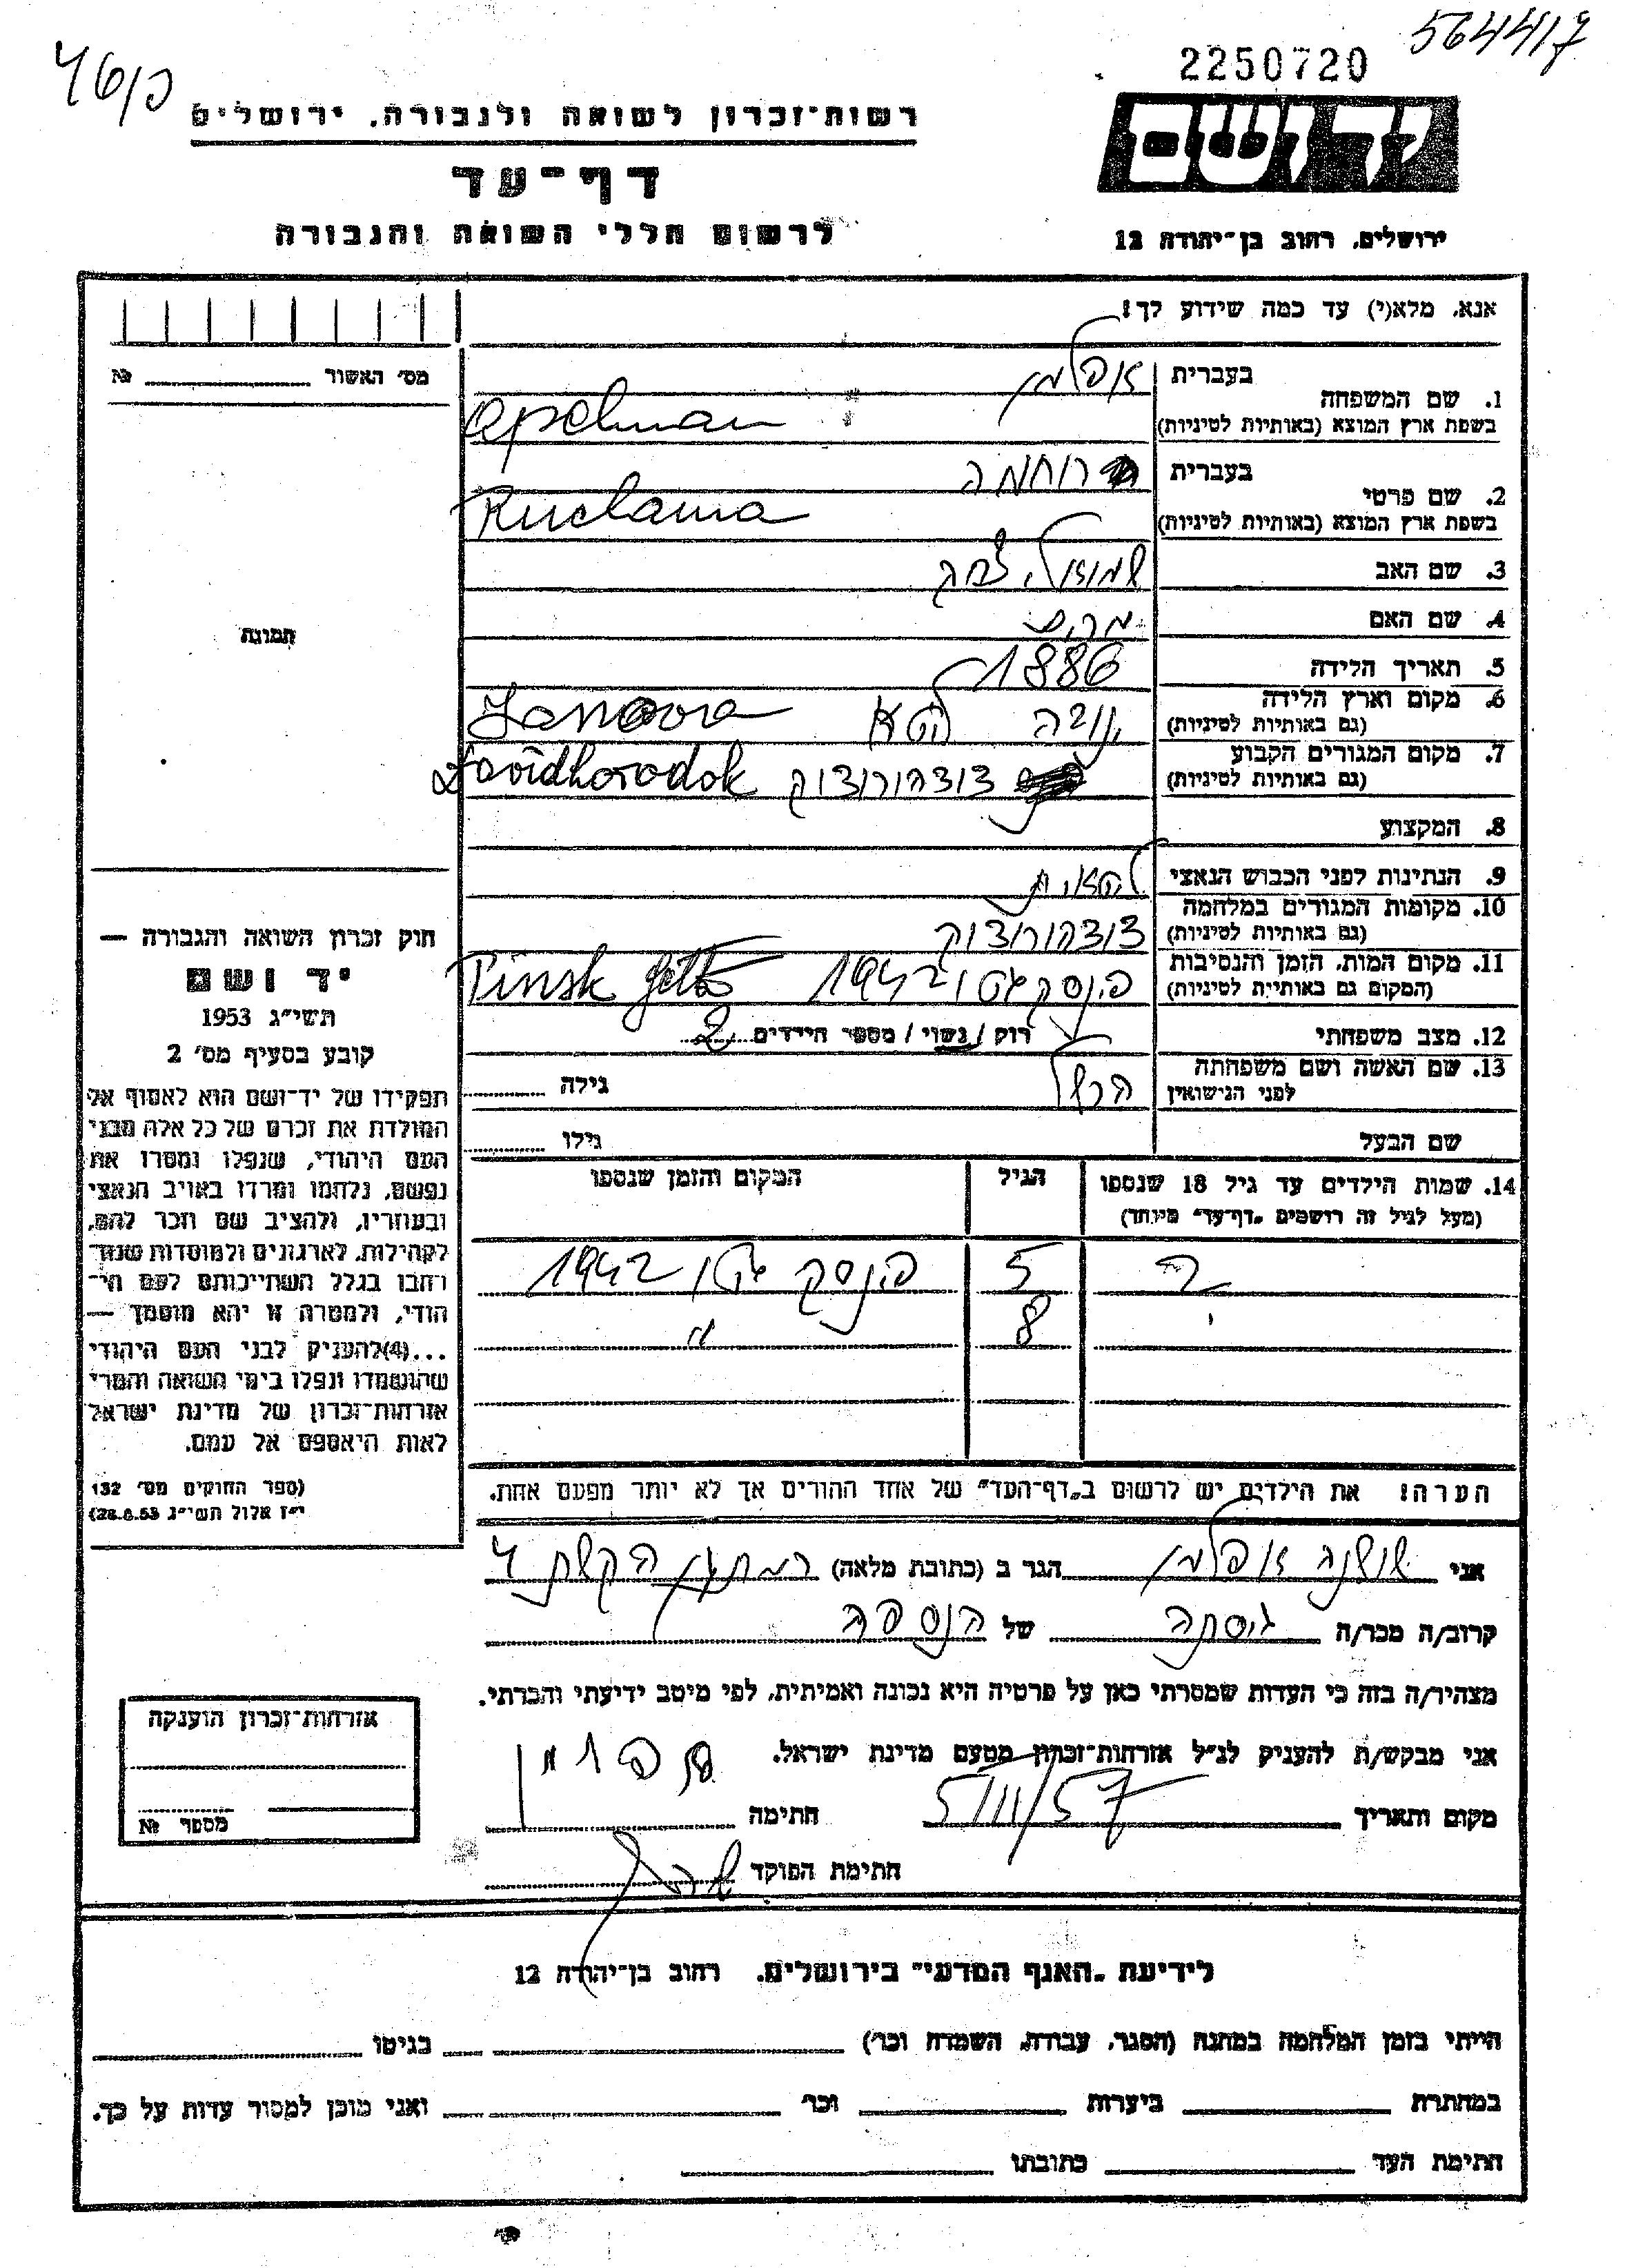 564417
2250720
46/כ
רשות־זכרון לשואה ולגבורה, ירושלים
דף־עד
לרשום חללי השואה והגבורה
יד ושם
ירושלים, רחוב בן־יהודה 12
אנא, מלא(י) עד כמה שידוע לך!
מס׳ האשור № 
1. שם המשפחה
בעברית אפלמן
בשפת ארץ המוצא (באותיות לטיניות) Apelman
2. שם פרטי
בעברית רוחמה
בשפת ארץ המוצא (באותיות לטיניות) Ruchama
3. שם האב שמואל יצחק
4. שם האם
5. תאריך הלידה 1886
6. מקום וארץ הלידה
(גם באותיות לטיניות) ינובה
7. מקום המגורים הקבוע
(גם באותיות לטיניות) דודהורודוק Davidhorodok
8. המקצוע
9. הנתינות לפני הכבוש הנאצי
10. מקומות המגורים במלחמה
(גם באותיות לטיניות) דודהורודוק
11. מקום המות, הזמן והנסיבות
(המקום גם באותיות לטיניות) פינסק גטו 1942 Pinsk Getto
12. מצב משפחתי רוק / נשוי / מספר הילדים 2
13. שם האשה ושם משפחתה
לפני הנישואין גילה
שם הבעל גילו
14. שמות הילדים עד גיל 18 שנספו
(מעל לגיל זה רושמים „דף־עד״ מיוחד)
הגיל
המקום והזמן שנספו
5 פינסק גטו 1942
8 "
הערה! את הילדים יש לרשום ב„דף־העד״ של אחד ההורים אך לא יותר מפעם אחת.
תמונה
חוק זכרון השואה והגבורה —
יד ושם
תשי״ג 1953
קובע בסעיף מס׳ 2
תפקידו של יד־ושם הוא לאסוף אל
המולדת את זכרם של כל אלה מבני
העם היהודי, שנפלו ומסרו את
נפשם, נלחמו ומרדו באויב הנאצי
ובעוזריו, ולהציב שם וזכר להם,
לקהילות, לארגונים ולמוסדות שנחר־
רחבו בגלל השתייכותם לעם הי־
הודי, ולמטרה זו יהא מוסמך —
...(4)להעניק לבני העם היהודי
שהושמדו ונפלו בימי השואה והמרי
אזרחות־זכרון של מדינת ישראל
לאות היאספם אל עמם.
(ספר החוקים מס׳ 132
י״ז אלול תשי״ג 28.8.53)
אני שושנה אפלמן הגר ב (כתובת מלאה) רמת גן הקשת 4
קרוב/ה מכר/ה גיסתה של הנספה
מצהיר/ה בזה כי העדות שמסרתי כאן על פרטיה היא נכונה ואמיתית, לפי מיטב ידיעתי והכרתי.
אני מבקש/ת להעניק לנ״ל אזרחות־זכרון מטעם מדינת ישראל.
מקום ותאריך 5/III/57 חתימה
חתימת הפוקד
אזרחות־זכרון הוענקה
מספר №
לידיעת „האגף המדעי״ בירושלים, רחוב בן־יהודה 12
הייתי בזמן המלחמה במחנה (הסגר, עבודה, השמדה וכו׳) בגיטו
במחתרת ביערות וכו׳ ואני מוכן למסור עדות על כך.
חתימת העד כתובתו